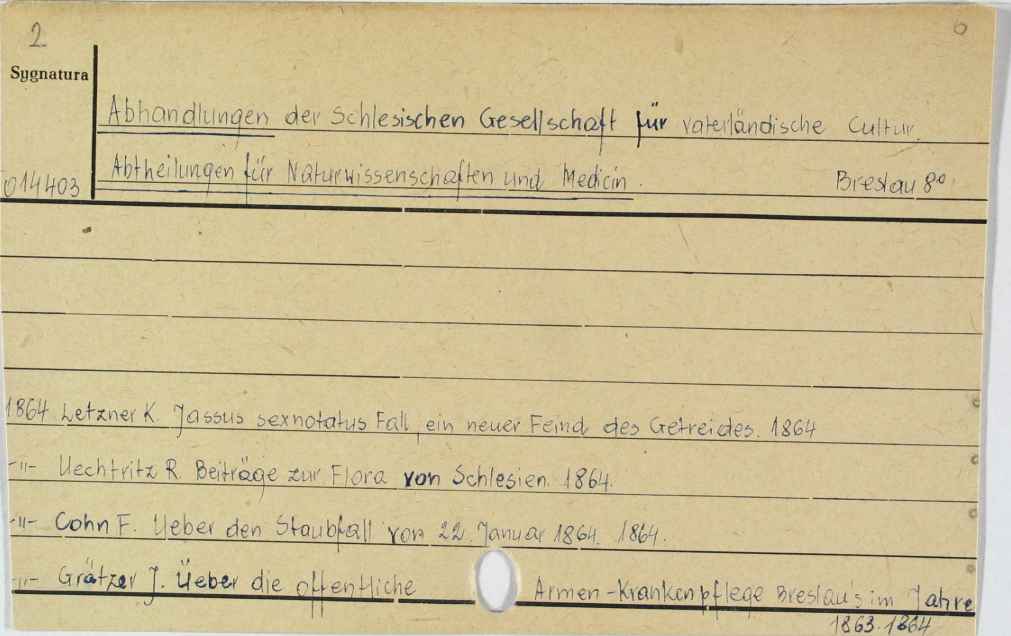 2
6
Sygnatura
Abhandlungen der Schlesischen Gesellschaft für vaterländische Cultur.
Abtheilungen für Naturwissenschaften und Medicin.
014403
Breslau 8º
1864 Letzner K. Jassus sexnotatus Fall, ein neuer Feind des Getreides. 1864
-"- Uechtritz R. Beiträge zur Flora von Schlesien. 1864.
-"- Cohn F. Ueber den Staubfall von 22. Januar 1864. 1864.
-"- Grätzer J. Üeber die offentliche Armen-Krankenpflege Breslau's im Jahre
1863. 1864